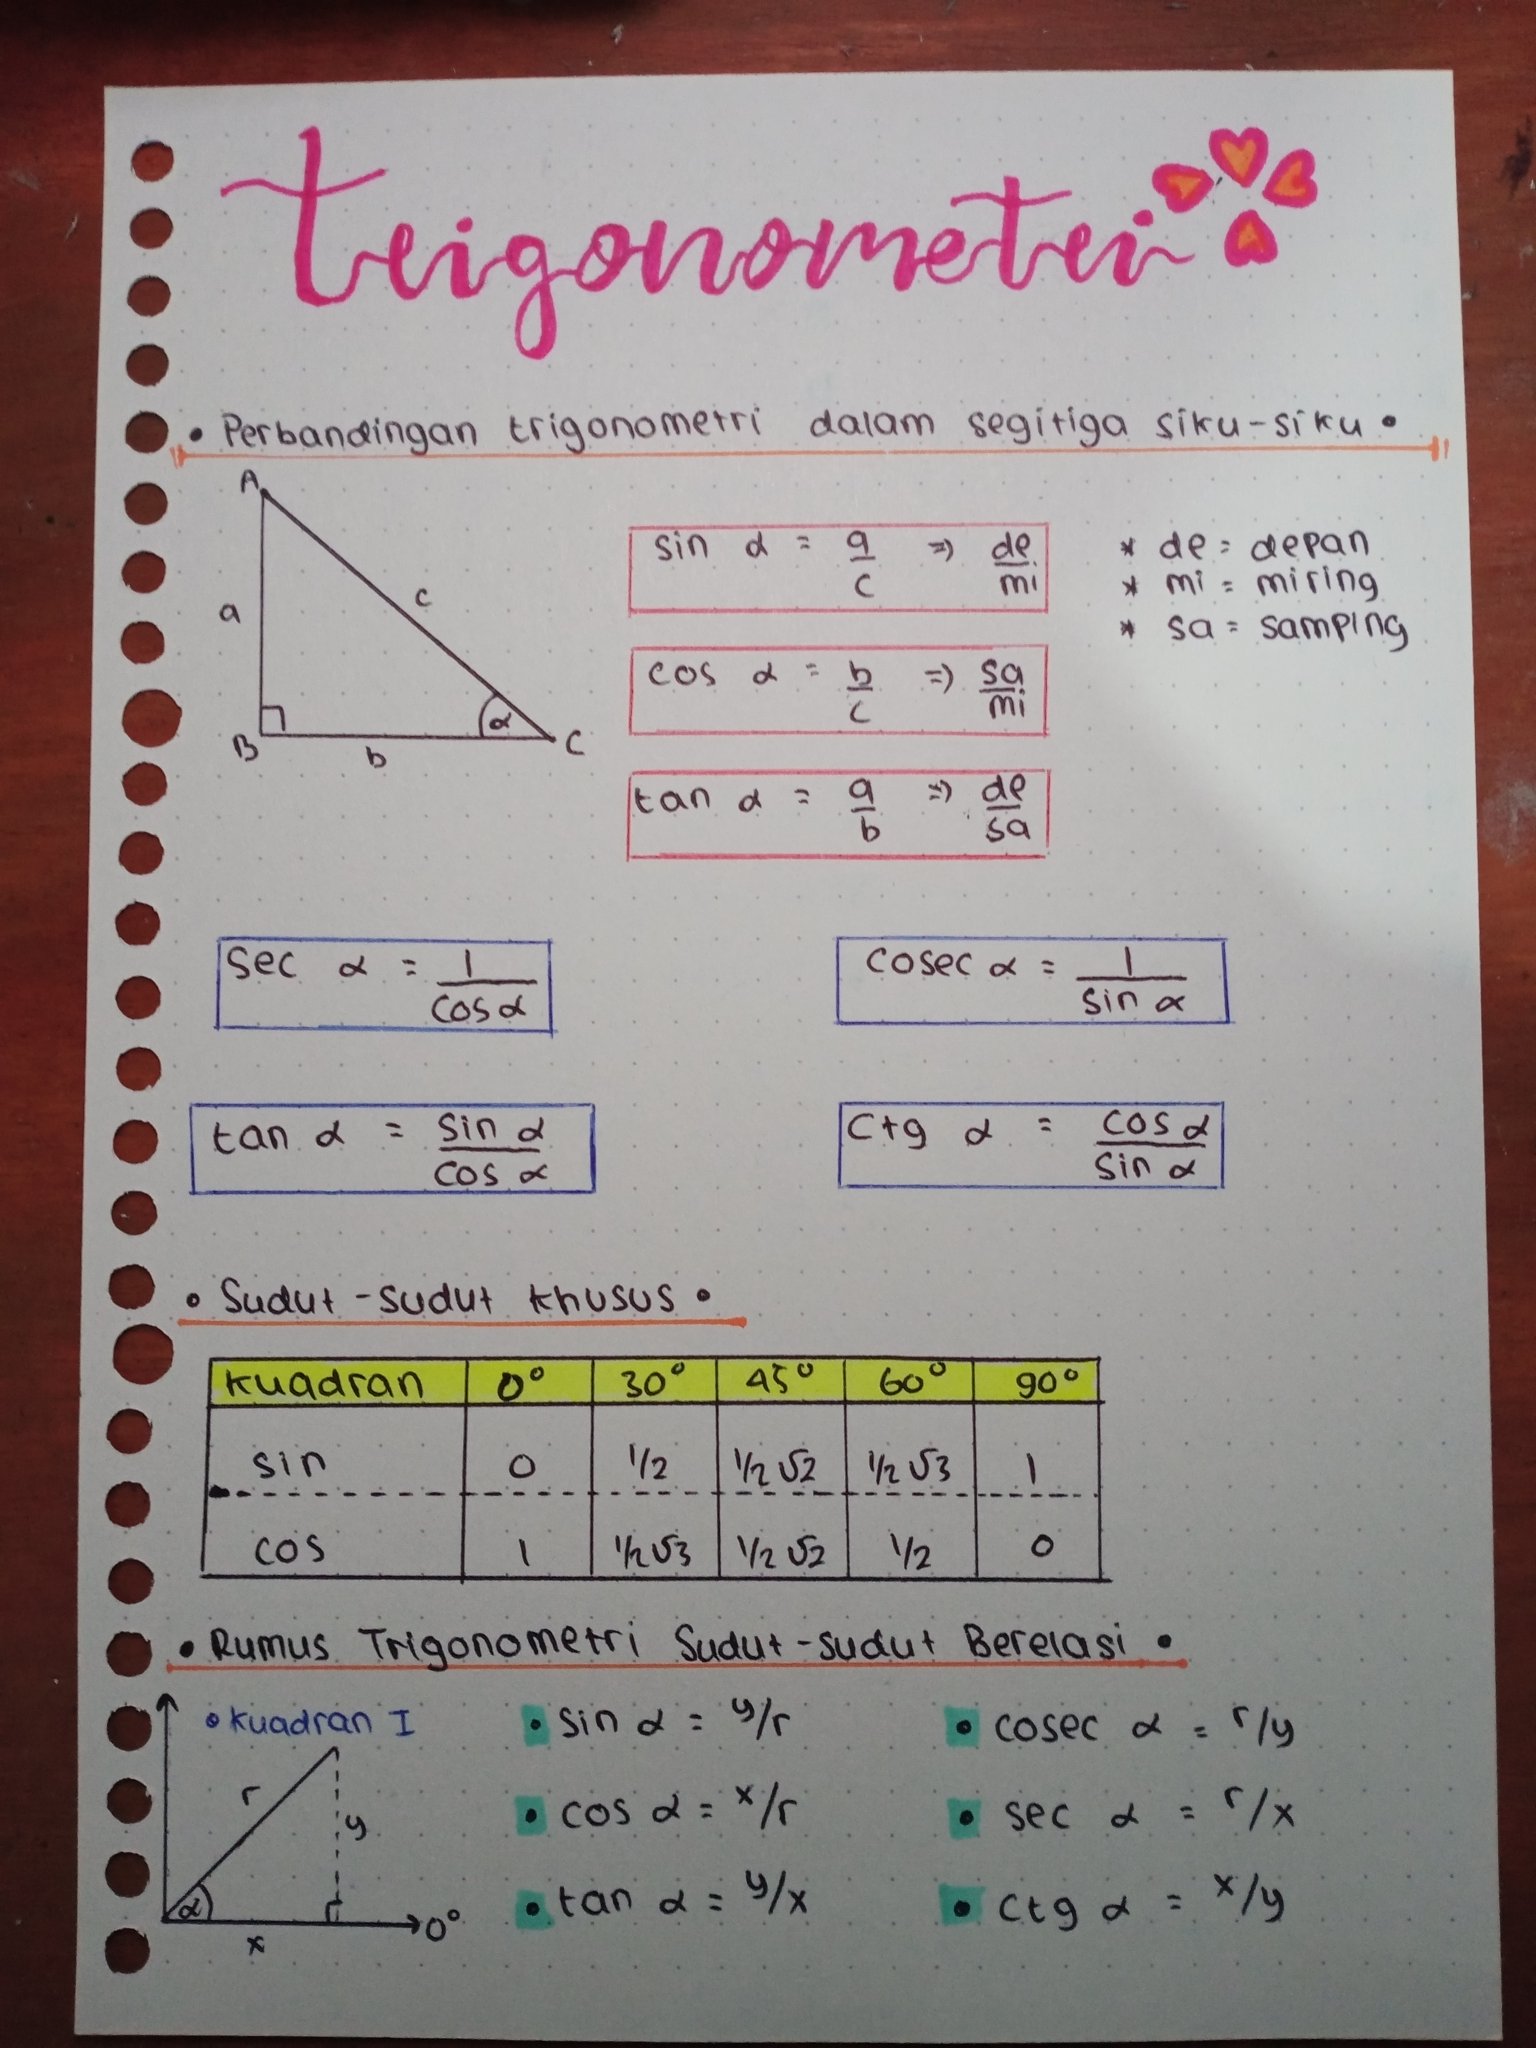 trigonometri
• Perbandingan trigonometri dalam segitiga siku-siku •
A
a
c
B
b
α
C
sin α = a/c => de/mi
cos α = b/c => sa/mi
tan α = a/b => de/sa
* de = depan
* mi = miring
* sa = samping
sec α = 1/cos α
cosec α = 1/sin α
tan α = sin α/cos α
ctg α = cos α/sin α
• Sudut-sudut khusus •
kuadran 0° 30° 45° 60° 90°
sin 0 1/2 1/2 √2 1/2 √3 1
cos 1 1/2 √3 1/2 √2 1/2 0
• Rumus Trigonometri Sudut-sudut Berelasi •
• kuadran I
r
y
α
x
0°
• sin α = y/r
• cos α = x/r
• tan α = y/x
• cosec α = r/y
• sec α = r/x
• ctg α = x/y